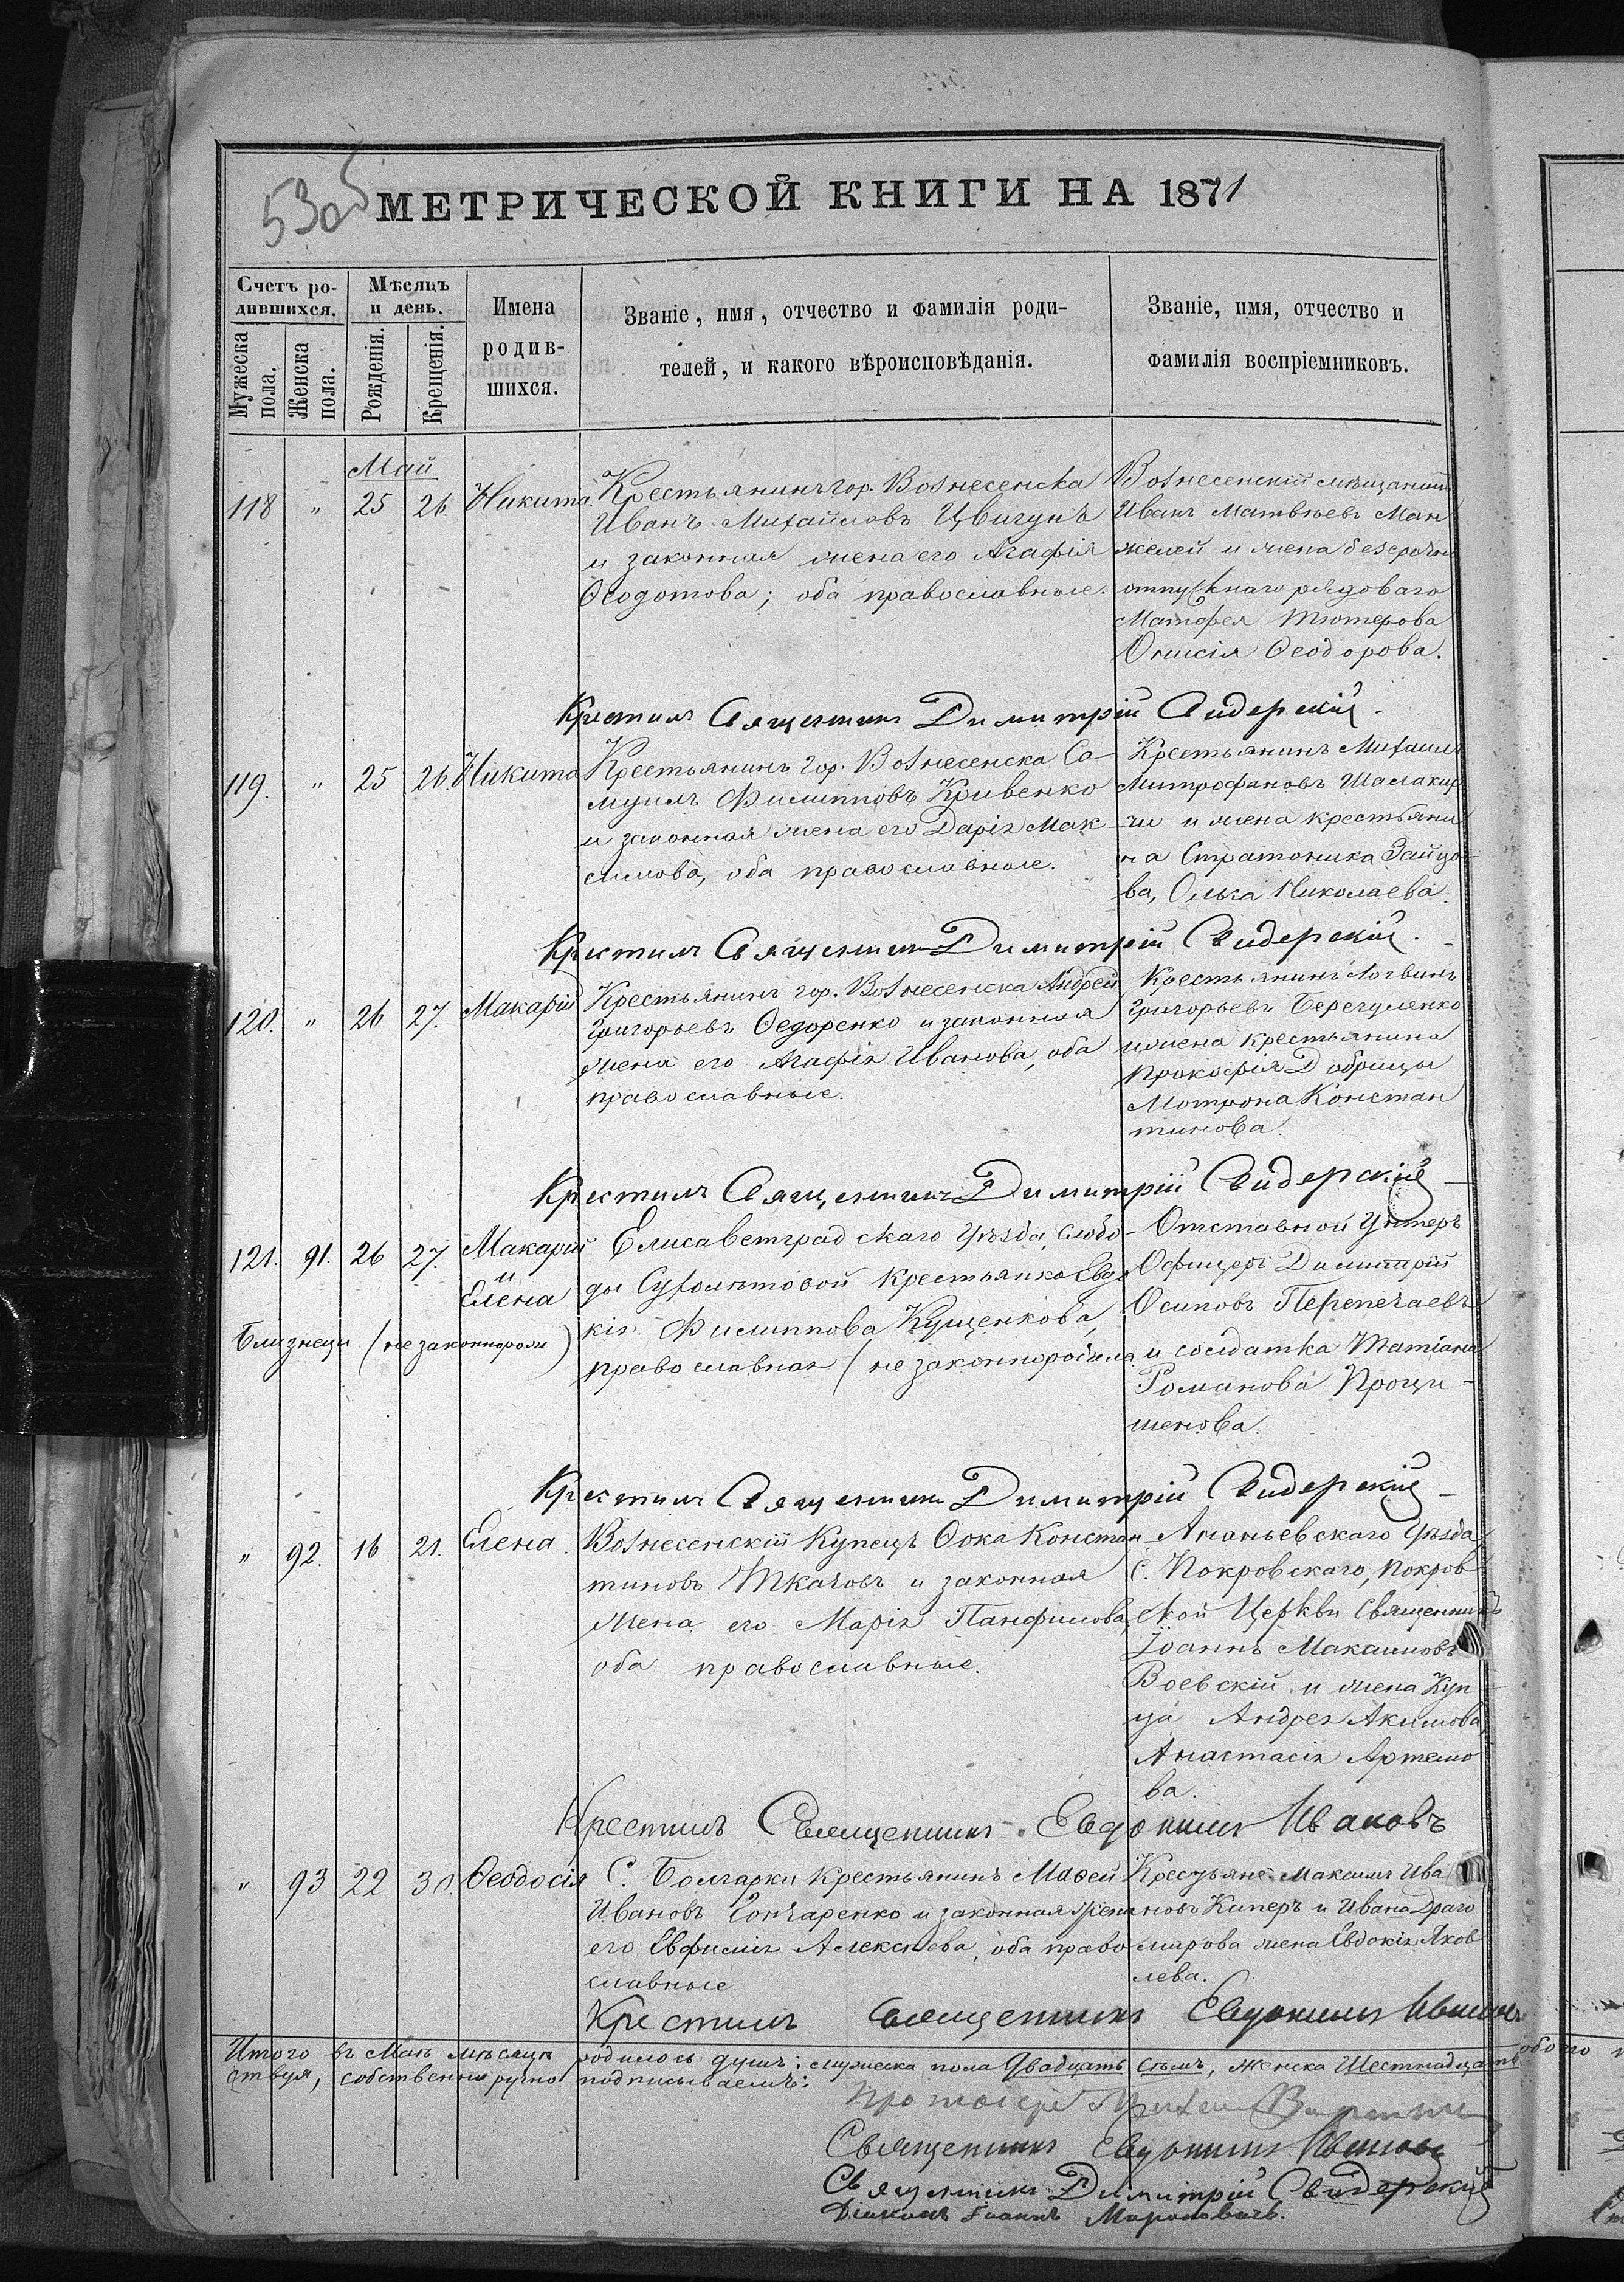 5305
МЕТРИЧЕСКОЙ КНИГИ НА 1871
Счетъ ро-
дившихся.
Мѣсяцъ
и день.
Мужеска
пола.
Женска
пола.
Рожденія.
Крещенія.
Имена
родив-
шихся.
Званіе, имя, отчество и фамилія роди-
телей, и какого вѣроисповѣданія.
Званіе, имя, отчество и
фамилія воспріемниковъ.
Май
118 " 25 26. Никита.
Крестьянинъ гор. Вознесенска
Иванъ Михайловъ Цвигунъ
и законная жена его Агафія
Ѳеодотова; оба православные.
Вознесенскій мѣщанинъ
Иванъ Матвѣевъ Ман
желей и жена безсрочно
отпускнаго рядоваго
Матфея Тютерова
Онисія Ѳеодорова.
Крестилъ Священникъ Димитрій Свидерскій.
119. " 25 26. Никита
Крестьянинъ гор. Вознесенска Са-
муилъ Филипповъ Кривенко
и законная жена его Дарія Мак-
симова, оба православные.
Крестьянинъ Михаилъ
Митрофановъ Шалакир
ги и жена крестьяни
на Стратоника Зайцо-
ва, Ольга Николаева.
Крестилъ Священникъ Димитрій Свидерскій.
120. " 26 27. Макарій
Крестьянинъ гор. Вознесенска Андрей
Григорьевъ Ѳедоренко и законная
жена его Агафія Иванова, оба
православные.
Крестьянинъ Логвинъ
Григорьевъ Берегуленко
и жена крестьянина
Прокофія Добрицы
Мотрона Констан
тинова.
Крестилъ Священникъ Димитрій Свидерскій
121. 91. 26 27. Макарій
и
Елена
Близнецы (незаконнорож)
Елисаветградскаго Уѣзда, слобо-
ды Сухолѣтовой крестьянка Евдо
кія Филиппова Кущенкова,
православная (незаконнородила
Отставной Унтеръ
Офицеръ Димитрій
Осиповъ Перепечаевъ
и солдатка Татіана
Романова Проци-
шенова.
Крестилъ Священникъ Димитрій Свидерскій
" 92. 16 21. Елена.
Вознесенскій Купецъ Ѳока Констан
тиновъ Ткачовъ и законная
жена его Марія Панфилова,
оба православные.
Ананьевскаго Уѣзда
С. Покровскаго, Покров
ской Церкви Священникъ
Іоаннъ Максимовъ
Воевскій и жена Куп
ца Андрея Акимова
Анастасія Артемо
ва.
Крестилъ Священникъ Евдокимъ Ивановъ
" 93 22 30. Ѳеодосія
С. Болгарки крестьянинъ Маѳей
Ивановъ Гончаренко и законная жена
его Евфимія Алексѣева, оба право
славные
Крестьяне Максимъ Ива
новъ Киперъ и Ивана Драго
мирова жена Евдокія Яков
лева.
Крестилъ Священникъ Евдокимъ Ивановъ
Итого въ Маѣ мѣсяцѣ родилось душъ: мужеска пола Двадцать семь, женска Шестнадцать обоего
ствуя, собственноручно подписываемъ:
Протоіерей
Священникъ Евдокимъ Ивановъ
Священникъ Димитрій Свидерскій
Діаконъ Іоаннъ Мироновичъ.